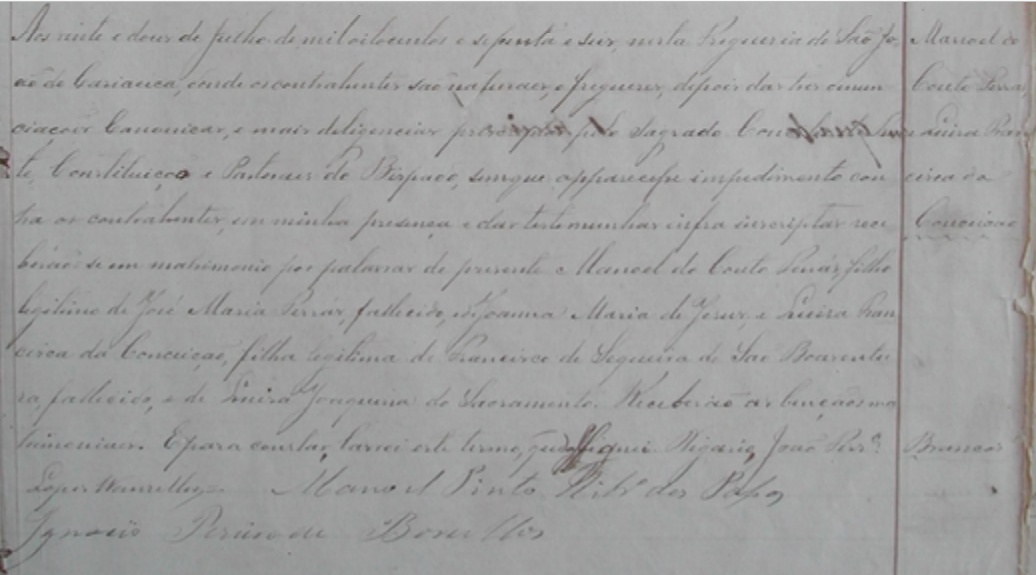 Aos vinte e dous de Julho de mil oitocentos e setenta e seis, nesta Freguesia de São Jo-
ão de Cariacica, onde os contrahentes são naturaes, e fregueses, depois das tres enun-
ciações Canonicas, e mais diligencias pelo Sagrado
te, Constituição e Pastoraes do Bispado, sem que apparecesse impedimento con-
tra os contrahentes, em minha presença e das testemunhas infra inscriptas rece-
berão-se em matrimonio por palavras de presente Manoel do Couto filho
legitimo de José Maria fallecido, e Joanna Maria de Jesus, e Luisa Fran
cisca da Conceição, filha legitima de Francisco de Sequeira de São Boaventu
ra, fallecido, e de Luisa Joaquina do Sacramento. Receberão as bençãos ma
trimoniaes. E para constar, lavrei este termo, que assignei. Vigario João
Lopes Manoel Pinto Ribr dos
Ignacio de
Manoel do
Couto
Luisa Fran
cisca da
Conceicao
Brancos